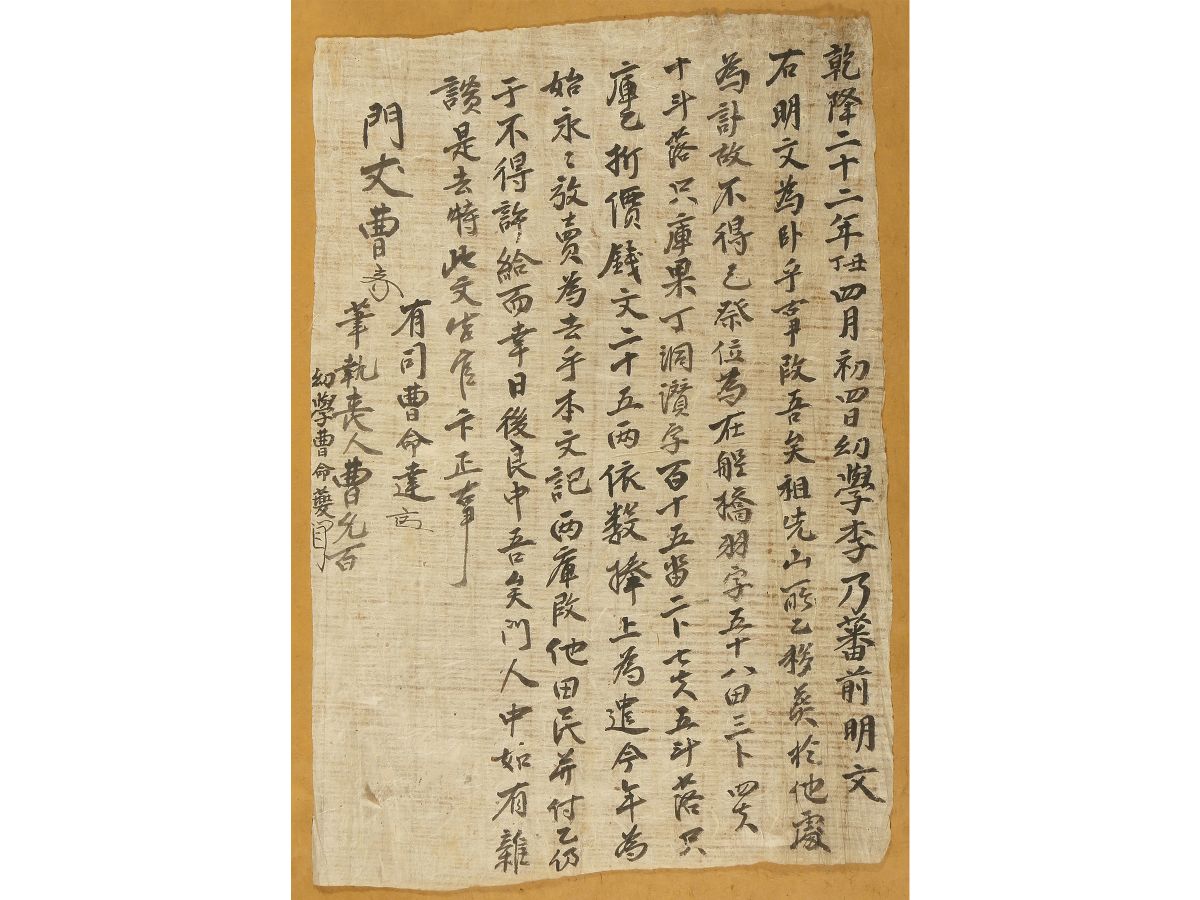 乾隆二十二年丁丑四月初四日幼學李乃蕃前明文
右明文為臥乎事段吾矣祖先山所乙移葬於他處
為計故不得已祭位為在船橋羽字五十八田三卜四夫
十斗落只庫果丁洞讚字百十五畓二卜七夫五斗落只
庫乙折價錢文二十五兩依數捧上為遣今年為
始永〻放賣為去乎本文記兩庫段他田民并付乙仍
于不得許給而幸日後良中吾矣門人中如有雜
談是去等持此文告官卞正事
門丈曹
有司曹命達
筆執喪人曹允百
幼學曹命夔